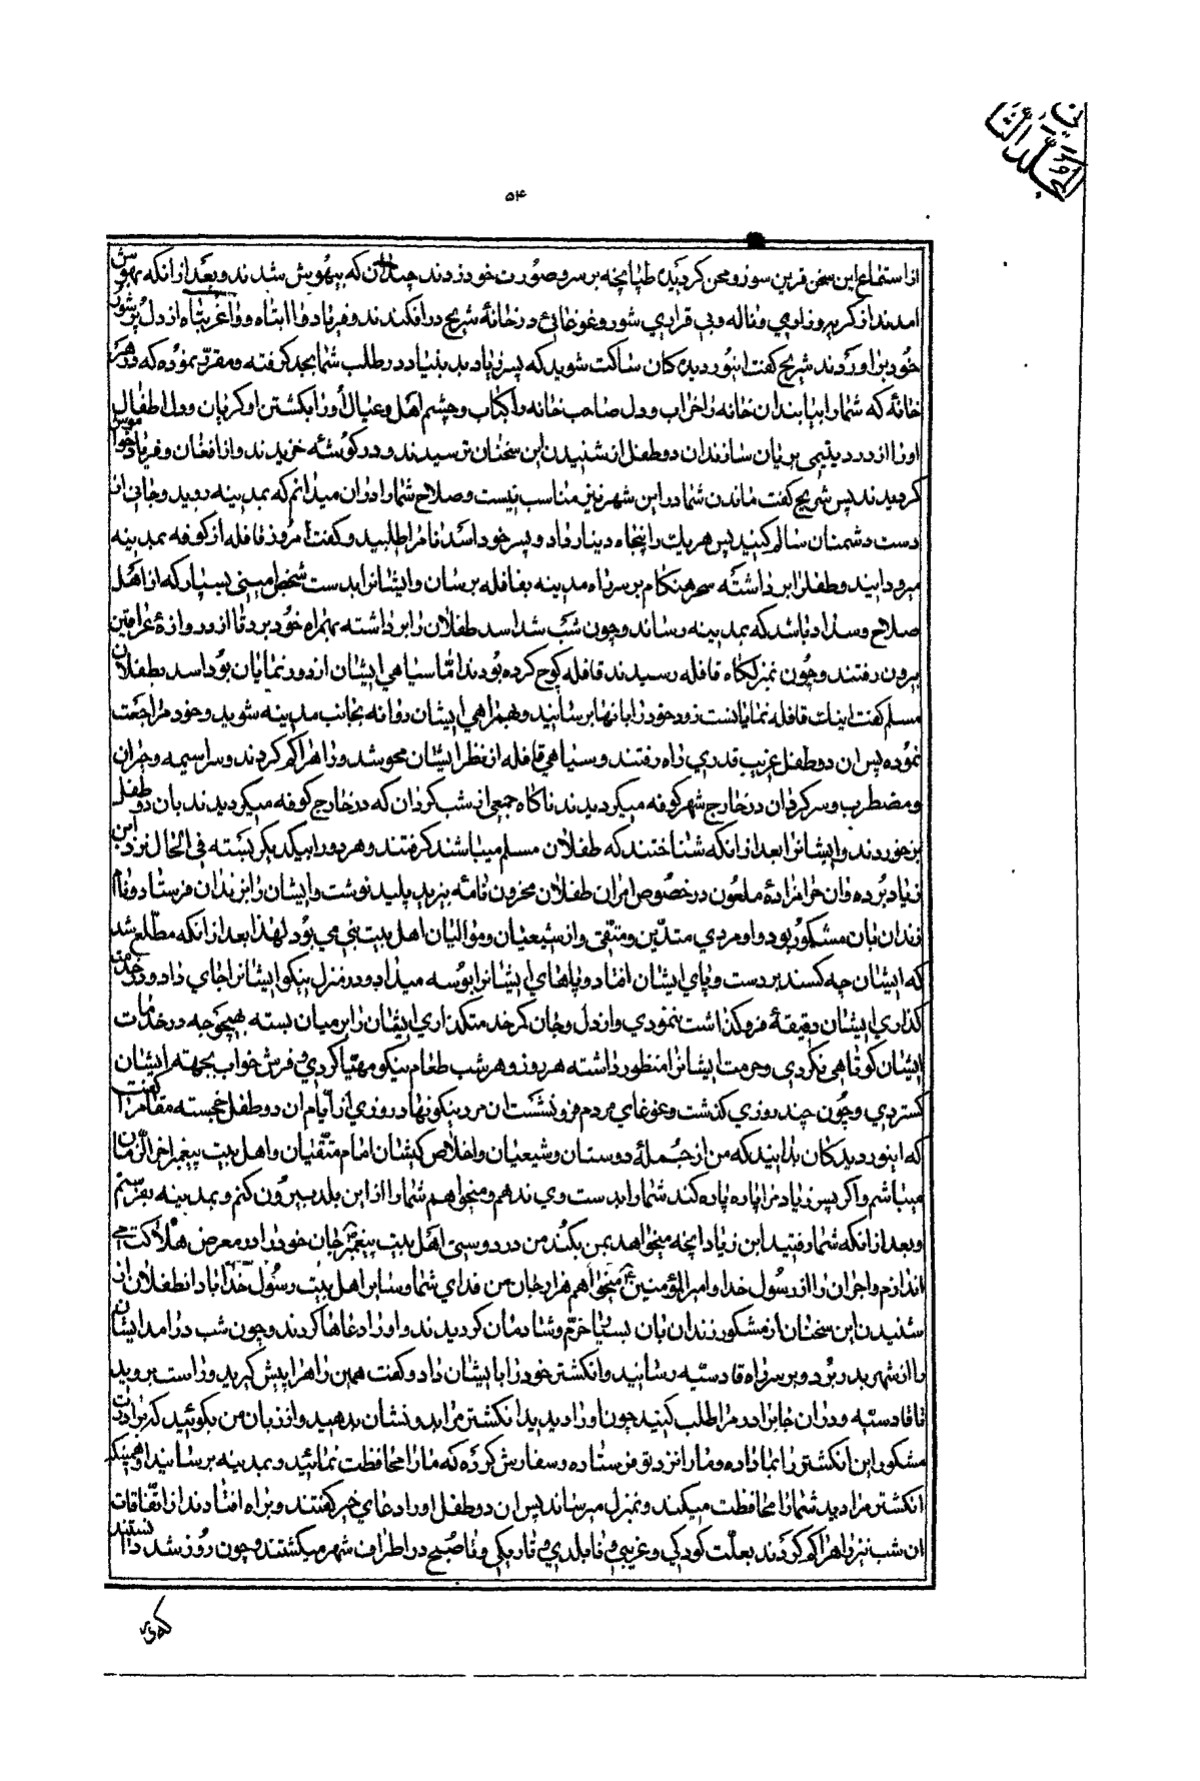 المجلد الثاني
۵۴
از استماع این سخن قرین سوز و محن گردیده طپانچه بر سر و صورت خود زدند چندان که بیهوش شدند و بعد از انکه بهوش
امدند از گریه و زاری و ناله و بی قراری شور و غوغائی در خانهٔ شریح درافکندند و فریاد وا ابتاه و وا غربتاه از دل پرشور
خود براوردند شریح گفت ای نوردیده کان ساکت شوید که پسر زیاد بد بنیاد در طلب شما بجد گرفته و مقرر نموده که در هر
خانهٔ که شما را بیابند ان خانه را خراب و دل صاحب خانه را کباب و چشم اهل و عیال او را بکشتن او گریان و دل اطفال
او را از درد یتیمی بریان سازند ان دو طفل از شنیدن این سخنان ترسیدند و در گوشهٔ خزیدند و از افغان و فریاد خواموش
گردیدند پس شریح گفت ماندن شما در این شهر نیز مناسب نیست و صلاح شما را در ان میدانم که بمدینه روید و جانی از
دست دشمنان سالم کنید پس هر یک را پنجاه دینار داد و پسر خود اسد نام را طلبید و گفت امروز قافله از کوفه بمدینه
میرود باید دو طفل را برداشته سحر هنگام بر سر راه مدینه بقافله برسان و ایشانرا بدست شخص امینی بسپار که از اهل
صلاح و سداد باشد که بمدینه رساند و چون شب شد اسد طفلان را برداشته بهمراه خود برد تا از دروازهٔ عراقین
بیرون رفتند و چون بمنزلگاه قافله رسیدند قافله کوچ کرده بودند اما سیاهی ایشان از دور نمایان بود اسد بطفلان
مسلم گفت اینک قافله نمایانست زود خود را بانها برسانید و همراهی ایشان روانه بجانب مدینه شوید و خود مراجعت
نموده پس ان دو طفل غریب قدری راه رفتند و سیاهی قافله از نظر ایشان محو شد و راه را گم کردند و سراسیمه و حیران
و مضطرب و سرگردان در خارج شهر کوفه میگردیدند ناگاه جمعی از شب گردان که در خارج کوفه میگردیدند بان دو طفل
برخوردند و ایشانرا بعد از انکه شناختند که طفلان مسلم میباشند گرفتند و هر دو را بیکدیگر بسته فی الحال نزد ابن
زیاد برده و ان حرامزادهٔ ملعون در خصوص امر ان طفلان محزون نامه بیزید پلید نوشت و ایشان را بزندان فرستاد و نام
زندان بان مشکور بود و او مردی متدین و متقی و از شیعیان و موالیان اهل بیت نبی می بود لهذا بعد از انکه مطلع شد
که ایشان چه کسند بر دست و پای ایشان افتاد و پاهای ایشانرا بوسه میداد و در منزل نیکو ایشانرا جای داد و در خدمت
گذاری ایشان دقیقهٔ فروگذاشت ننمودی و از دل و جان کمر خدمتگذاری ایشان را بر میان بسته بهیچوجه در خدمات
ایشان کوتاهی نکردی و حرمت ایشانرا منظور داشته هر روز و هر شب طعام نیکو مهیا کردی و فرش خواب بجهته ایشان
گستردی و چون چند روزی گذشت و غوغای مردم فرونشست ان مرد نیکو نهاد روزی از ایام ان دو طفل خجسته مقام را گفت
که ای نوردیدگان بدانید که من از جملهٔ دوستان و شیعیان و اخلاص کیشان امام متقیان و اهل بیت پیغمبر اخر الزمان
میباشم و اگر پسر زیاد مرا پاره پاره کند شما را بدست وی ندهم و میخواهم شما را از این بلد بیرون کنم و بمدینه بفرستم
و بعد از انکه شما رفتید ابن زیاد انچه میخواهد بمن بکند من در دوستی اهل بیت پیغمبر جان خود را در معرض هلاکت می
اندازم و اجر ان را از رسول خدا و امیر المؤمنین میخواهم هزار جان من فدای شما و سایر اهل بیت رسول خدا باد ان طفلان از
شنیدن این سخنان از مشکور زندان بان بسیار خرم و شادمان گردیدند و او را دعاها کردند و چون شب درامد ایشان
را از شهر بدر برد و بر سر راه قادسیه رسانید و انگشتر خود را بایشان داد و گفت همین راه را پیش گیرید و راست بروید
تا قادسیه و در ان جا برادر مرا طلب کنید چون او را دیدید انگشتر مرا بدو نشان بدهید و از زبان من بگوئید که برادرت
مشکور این انگشتر را بما داده و ما را نزد تو فرستاده و سفارش کرده که ما را محافظت نمائید و بمدینه برسانید او همینکه
انگشتر مرا دید شما را محافظت میکند و بمنزل میرساند پس ان دو طفل او را دعای خیر گفتند و براه افتادند از اتفاقات
ان شب نیز راه را گم کردند بعلت کودکی و غریبی و نابلدی و تاریکی و تا صبح در اطراف شهر میگشتند و چون روز شد دانستند